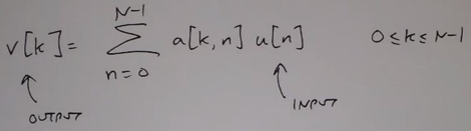 v[k] = N-1 ∑ n=0 a[k,n] u[n] 0≤k≤N-1
↑ OUTPUT ↑ INPUT